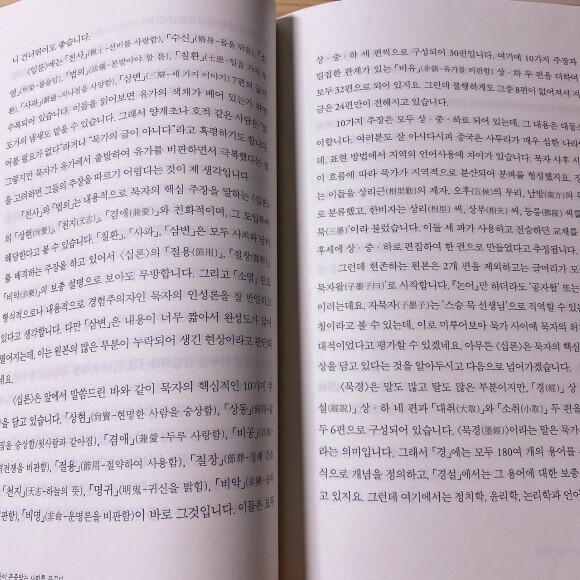 니 건너뛰어도 좋습니다.
〈입론〉에는 「친사」(親士-선비를 사랑함), 「수신」(修身-몸을 닦음), 「소
염」(所染-물들임), 「법의」(法儀-본받아야 할 틀), 「칠환」(七患-일곱 가지
환), 「사과」(辭過-지나침을 사양함), 「삼변」(三辯-세 가지 이야기) 7편의 글이
수록되어 있습니다. 이들을 읽어보면 유가의 색채가 배어 있는가 하면
도가의 냄새도 맡을 수 있습니다. 그래서 양계초나 호적 같은 사람은 "읽
어볼 필요가 없다"라거나 "묵자의 글이 아니다"라고 혹평하기도 합니다.
그렇지만 묵자가 유가에서 출발하여 유가를 비판하면서 극복했다는 점
을 고려하면 그들의 주장을 따르기 어렵다는 것이 제 생각입니다.
「친사」와 「법의」는 내용적으로 묵자의 핵심 주장을 말하는 〈십론〉
의 「상현(尙賢)」, 「천지(天志)」, 「겸애(兼愛)」와 친화적이며, 그 도입부에
해당한다고 볼 수 있습니다. 「칠환」, 「사과」, 「삼변」은 모두 사치와 낭비
를 배격하는 주장을 하고 있어서 〈십론〉의 「절용(節用)」, 「절장(節葬)」,
「비악(非樂)」의 보충 설명으로 보아도 무방합니다. 그리고 「소염」 편도
형식적으로나 내용적으로 경험주의자인 묵자의 인성론을 잘 반영하고
있다고 생각합니다. 다만 「삼변」은 내용이 너무 짧아서 완성도가 많이
떨어지는데, 이는 원본의 많은 부분이 누락되어 생긴 현상이라고 판단되
네요.
〈십론〉은 앞에서 말씀드린 바와 같이 묵자의 핵심적인 10가지 주
을 담고 있습니다. 「상현」(尙賢-현명한 사람을 숭상함), 「상동」(尙同-
짐을 숭상함(윗사람과 같아짐), 「겸애」(兼愛-두루 사랑함), 「비공」(非攻-
전쟁을 비판함), 「절용」(節用-절약하여 사용함), 「절장」(節葬-장례 간소
「천지」(天志-하늘의 뜻), 「명귀」(明鬼-귀신을 밝힘), 「비악」(非樂-음악
판함), 「비명」(非命-운명론을 비판함)이 바로 그것입니다. 이들은 모두
상·중·하 세 편씩으로 구성되어 30편입니다. 여기에 10가지 주장과
밀접한 관계가 있는 「비유」(非儒-유가를 비판함) 상·하 두 편을 더하여
모두 32편으로 되어 있지요. 그런데 불행하게도 그중 8편이 없어져서 지
금은 24편만이 전해지고 있습니다.
10가지 주장은 모두 상·중·하로 되어 있는데, 그 내용은 대동소
이합니다. 여러분도 잘 아시다시피 중국은 사투리가 매우 심한 나라
데, 표현 방법에서 지역의 언어사용에 차이가 있습니다. 묵자 사후 시
이 흐름에 따라 묵가가 지역적으로 분산되어 분파를 형성했지요. 장
는 이들을 상리근(相里勤)의 제자, 오후(五侯)의 무리, 남방(南方)의
로 분류했고, 한비자는 상리(相里) 씨, 상부(相夫) 씨, 등릉(鄧陵) 씨를
묵(三墨)이라 불렀습니다. 이들 세 파가 사용하고 전승하던 교재를
후세에 상·중·하로 편집하여 한 권으로 만들었다고 추정됩니다.
그런데 현존하는 원본은 2개 편을 제외하고는 글머리가 모
묵자왈(子墨子曰)'로 시작합니다. 『논어』만 하더라도 '공자왈' 또는
이러는데요. 자묵자(子墨子)는 '스승 묵 선생님'으로 직역할 수 있는
칭이라고 볼 수 있는데, 이로 미루어보아 묵가 사이에 묵자의 위
대적이었다고 평가할 수 있겠네요. 아무튼 〈십론〉은 묵자의 핵심
상을 담고 있다는 것을 알아두시고 다음으로 넘어가겠습니다.
〈묵경〉은 말도 많고 탈도 많은 부분이지만, 「경(經)」 상·
설(經說)」 상·하 네 편과 「대취(大取)」와 「소취(小取)」 두 편을
두 6편으로 구성되어 있습니다. 〈묵경(墨經)〉이라는 말은 묵가
라는 의미입니다. 그래서 「경」에는 모두 180여 개의 용어를
식으로 개념을 정의하고, 「경설」에서는 그 용어에 대한 보충
고 있지요. 그런데 여기에서는 정치학, 윤리학, 논리학과 언어